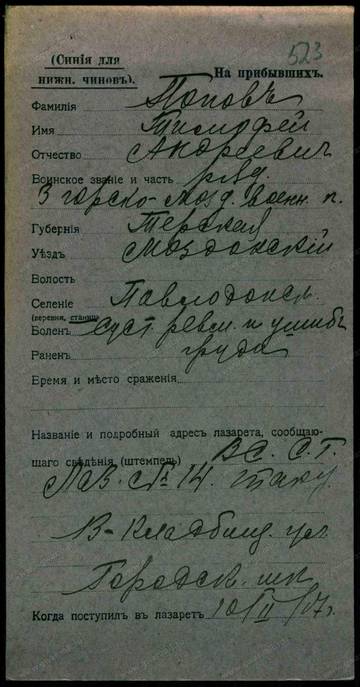 523
(Синія для
нижн. чиновъ).
На прибывшихъ.
Фамилія Поповъ
Имя Тимофей
Отчество Андреевич
Воинское званіе и часть ряд.
3 горско-мозд. военн. п.
Губернія Терская
Уѣздъ Моздокскій
Волость
Селеніе Павлодольск.
(деревня, станица)
Боленъ суст ревм. и ушибъ
Раненъ груди
Время и мѣсто сраженія
Названіе и подробный адресъ лазарета, сообщаю-
щаго свѣдѣнія (штемпель) ВС. С. Г.
Лаз. № 14.
Кладбищ. ул
Городск. шк
Когда поступилъ въ лазаретъ 10/II/17г.